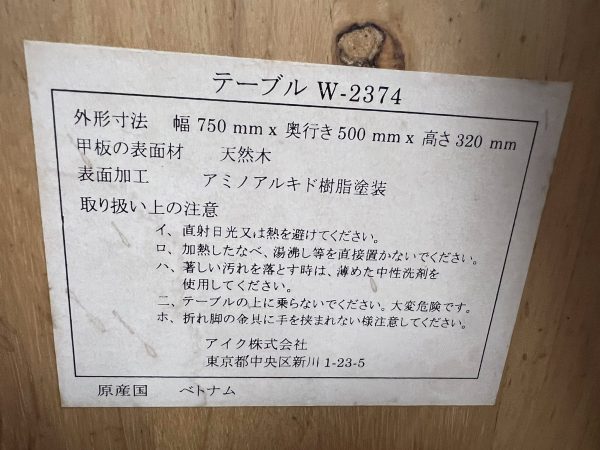 テーブル W-2374
外形寸法 幅 750 mm x 奥行き 500 mm x 高さ 320 mm
甲板の表面材 天然木
表面加工 アミノアルキド樹脂塗装
取り扱い上の注意
イ、直射日光又は熱を避けてください。
ロ、加熱したなべ、湯沸し等を直接置かないでください。
ハ、著しい汚れを落とす時は、薄めた中性洗剤を
使用してください。
ニ、テーブルの上に乗らないでください。大変危険です。
ホ、折れ脚の金具に手を挟まれない様注意してください。
アイク株式会社
東京都中央区新川1-23-5
原産国 ベトナム